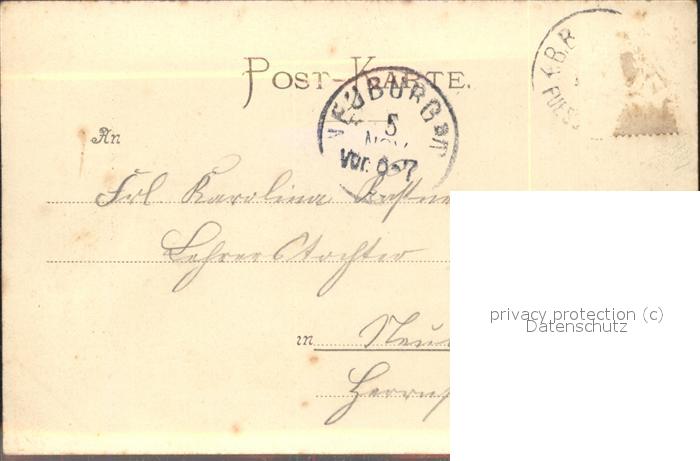 POST-KARTE.
NEUBURG a/D
5
NOV
Vor. 6-7
K.B.B.
An
Frl. Karolina
Lehrerstochter
in Neu
privacy protection (c)
Datenschutz